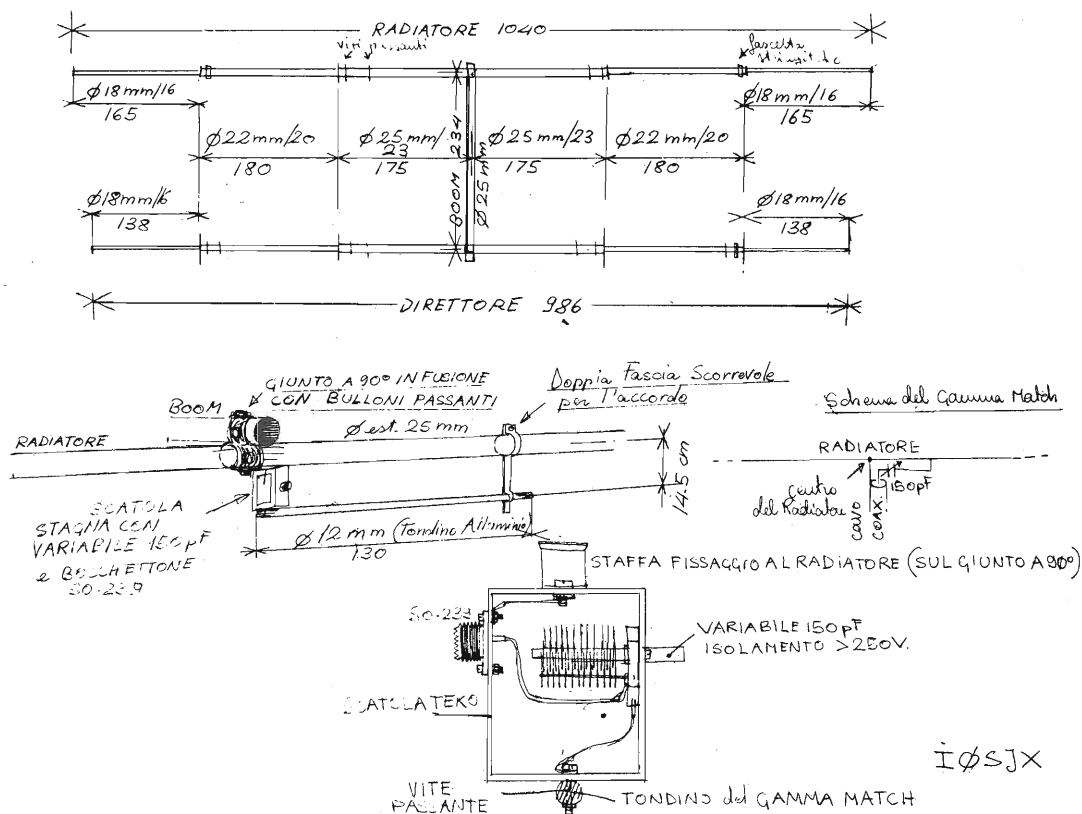 RADIATORE 1040
viti passanti
fascetta
Ø18mm/16
165
Ø18mm/16
165
Ø22mm/20
180
Ø25mm/
23
175
BOOM 234
Ø25mm
Ø25mm/23
175
Ø22mm/20
180
Ø18mm/16
138
Ø18mm/16
138
DIRETTORE 986
GIUNTO A 90° IN FUSIONE
CON BULLONI PASSANTI
BOOM
RADIATORE
Ø est. 25 mm
Doppia Fascia Scorrevole
per l'accordo
14.5 cm
Schema del Gamma Match
RADIATORE
150pF
centro
del Radiatore
CAVO
COAX.
SCATOLA
STAGNA CON
VARIABILE 150pF
e BOCCHETTONE
SO-239
Ø12mm (Tondino Alluminio)
130
STAFFA FISSAGGIO AL RADIATORE (SUL GIUNTO A 90°)
SO-239
VARIABILE 150pF
ISOLAMENTO >250V.
SCATOLA TEKO
VITE
PASSANTE
TONDINO del GAMMA MATCH
IØSJX